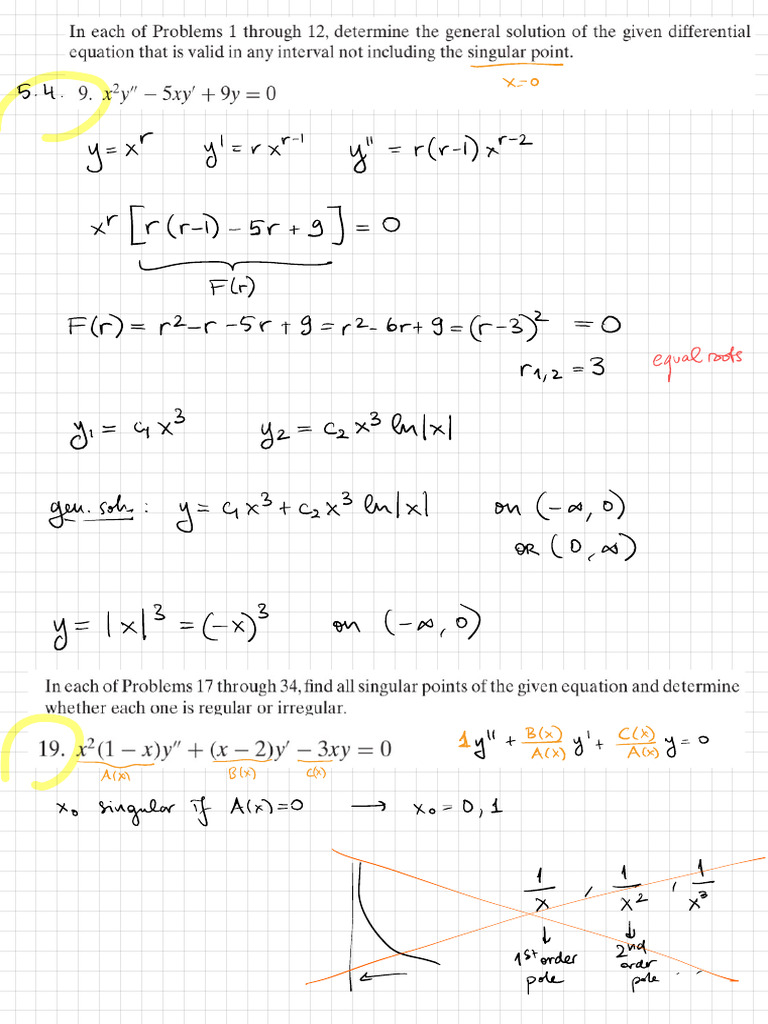 In each of Problems 1 through 12, determine the general solution of the given differential
equation that is valid in any interval not including the singular point.
x=0
5.4. 9. x²y″ − 5xy′ + 9y = 0
y = x^r y' = r x^{r-1} y" = r(r-1) x^{r-2}
x^r [r(r-1) - 5r + 9] = 0
F(r)
F(r) = r² - r - 5r + 9 = r² - 6r + 9 = (r-3)² = 0
r₁,₂ = 3 equal roots
y₁ = c₁x³ y₂ = c₂x³ ln|x|
gen. soln: y = c₁x³ + c₂x³ ln|x| on (-∞, 0)
OR (0, ∞)
y = |x|³ = (-x)³ on (-∞, 0)
In each of Problems 17 through 34, find all singular points of the given equation and determine
whether each one is regular or irregular.
19. x²(1 − x)y″ + (x − 2)y′ − 3xy = 0 1y" + B(x)/A(x) y' + C(x)/A(x) y = 0
A(x) B(x) C(x)
x₀ singular if A(x)=0 → x₀ = 0, 1
1/x , 1/x² , 1/x³
↓ ↓
1st order 2nd
pole order
pole . .